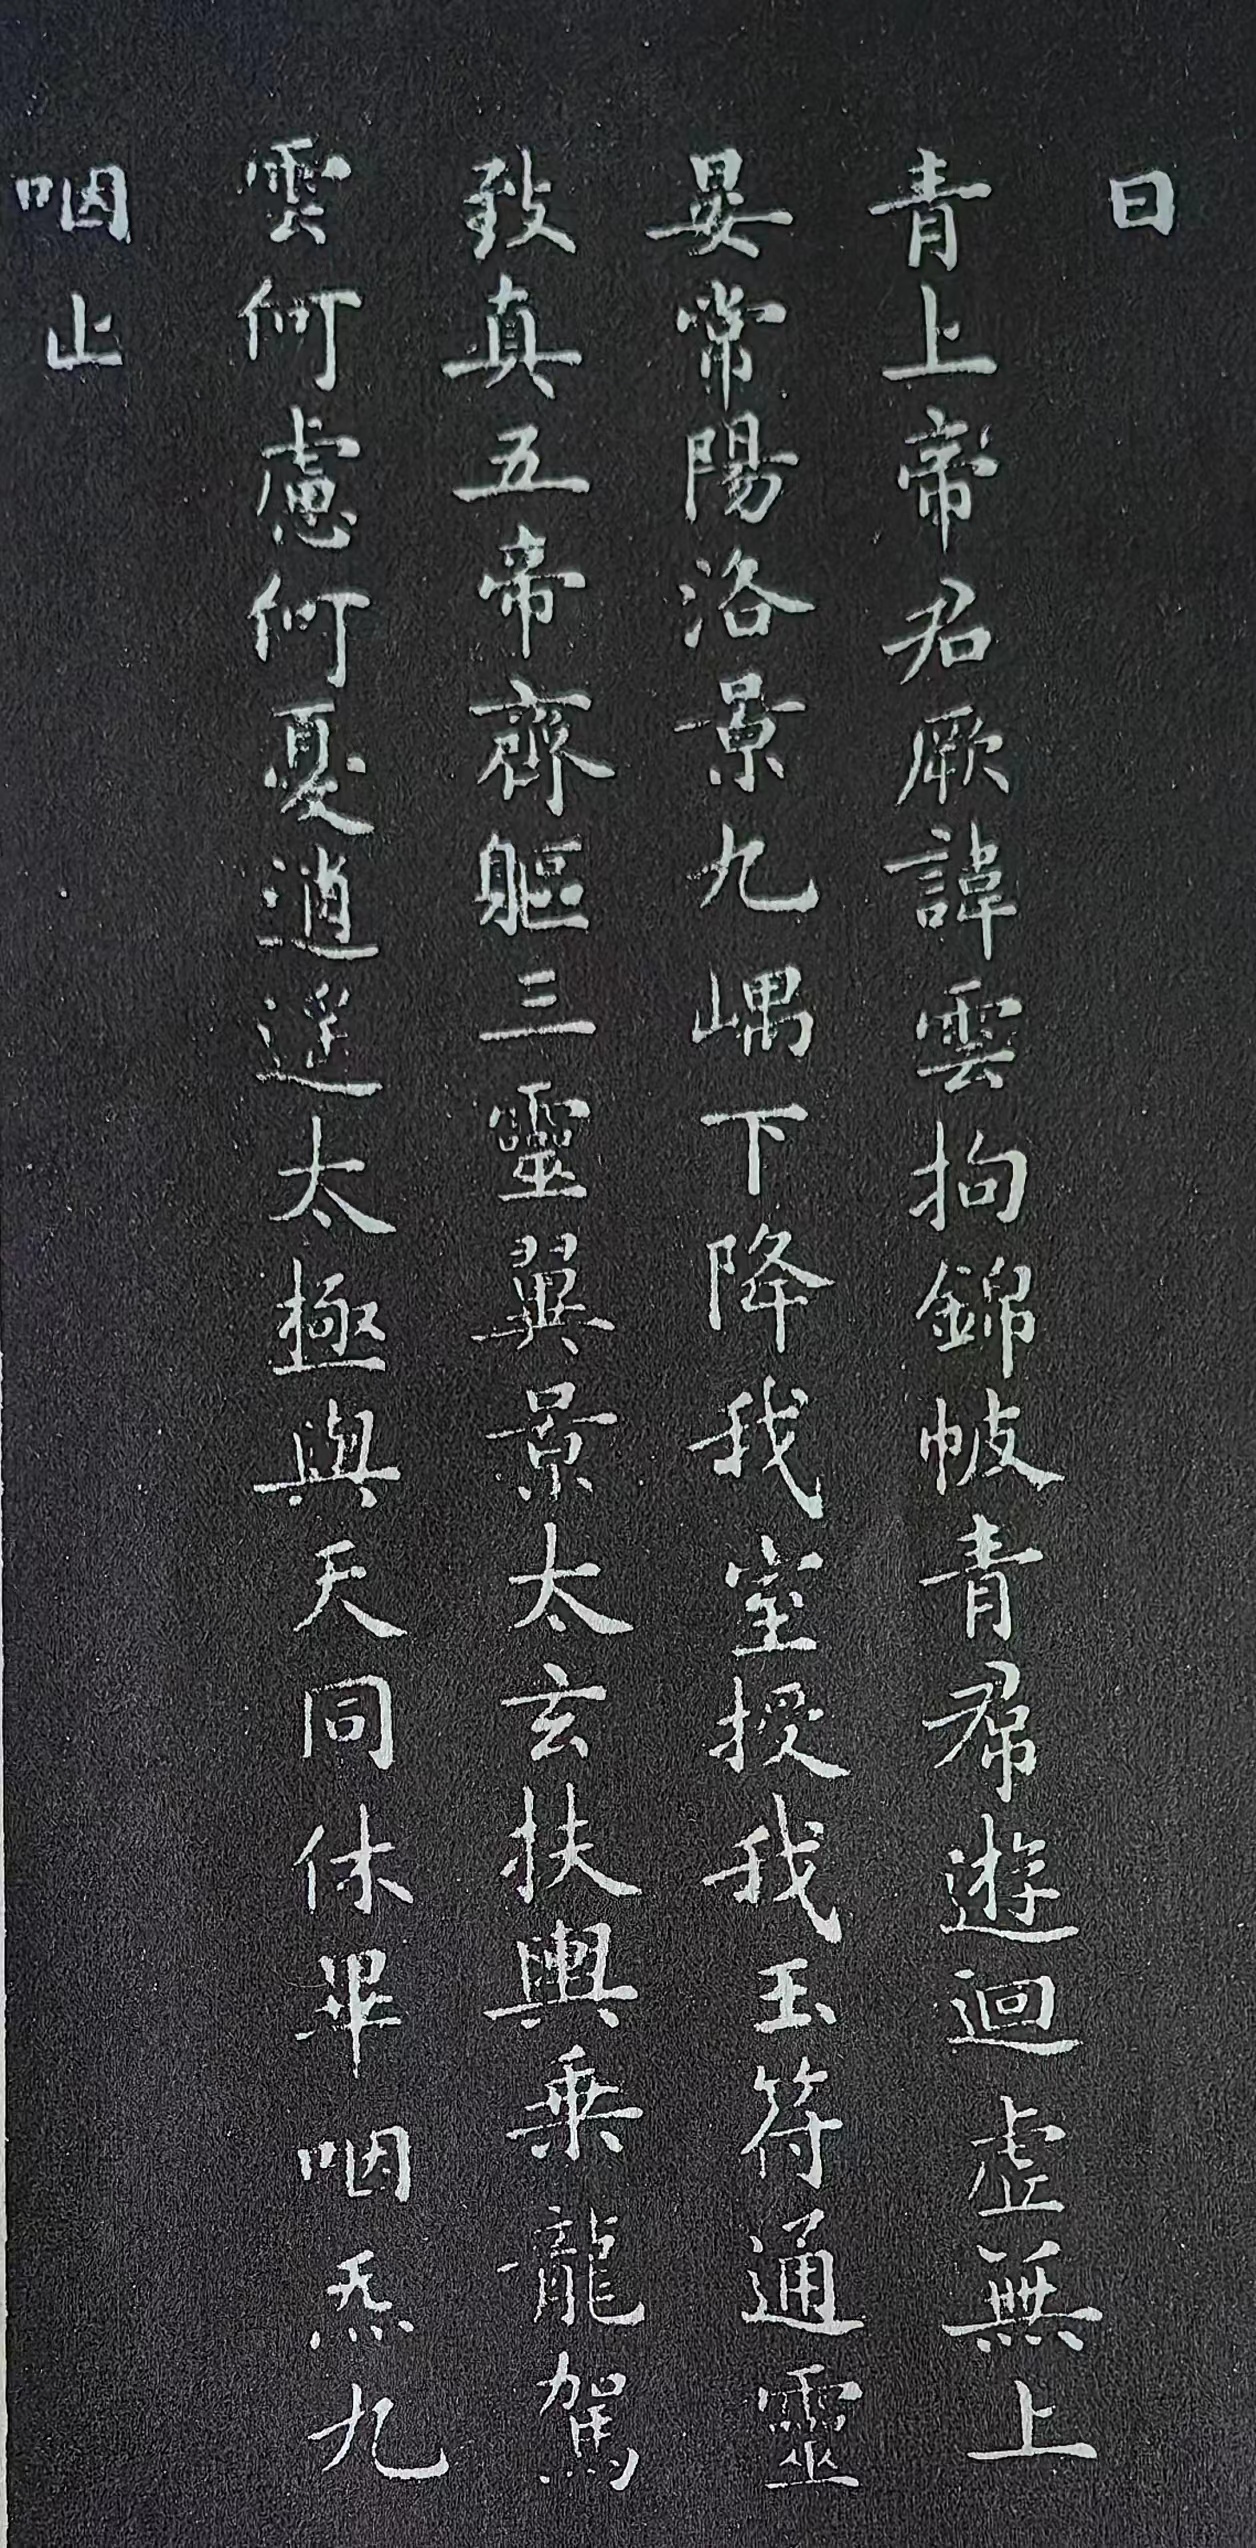 曰
青上帝君厥諱雲拘錦帔青帬遊迴虛無上
晏常陽洛景九嵎下降我室授我玉符通靈
致真五帝齊軀三靈翼景太玄扶輿乘龍駕
雲何慮何憂逍遥太極與天同休畢咽炁九
咽止